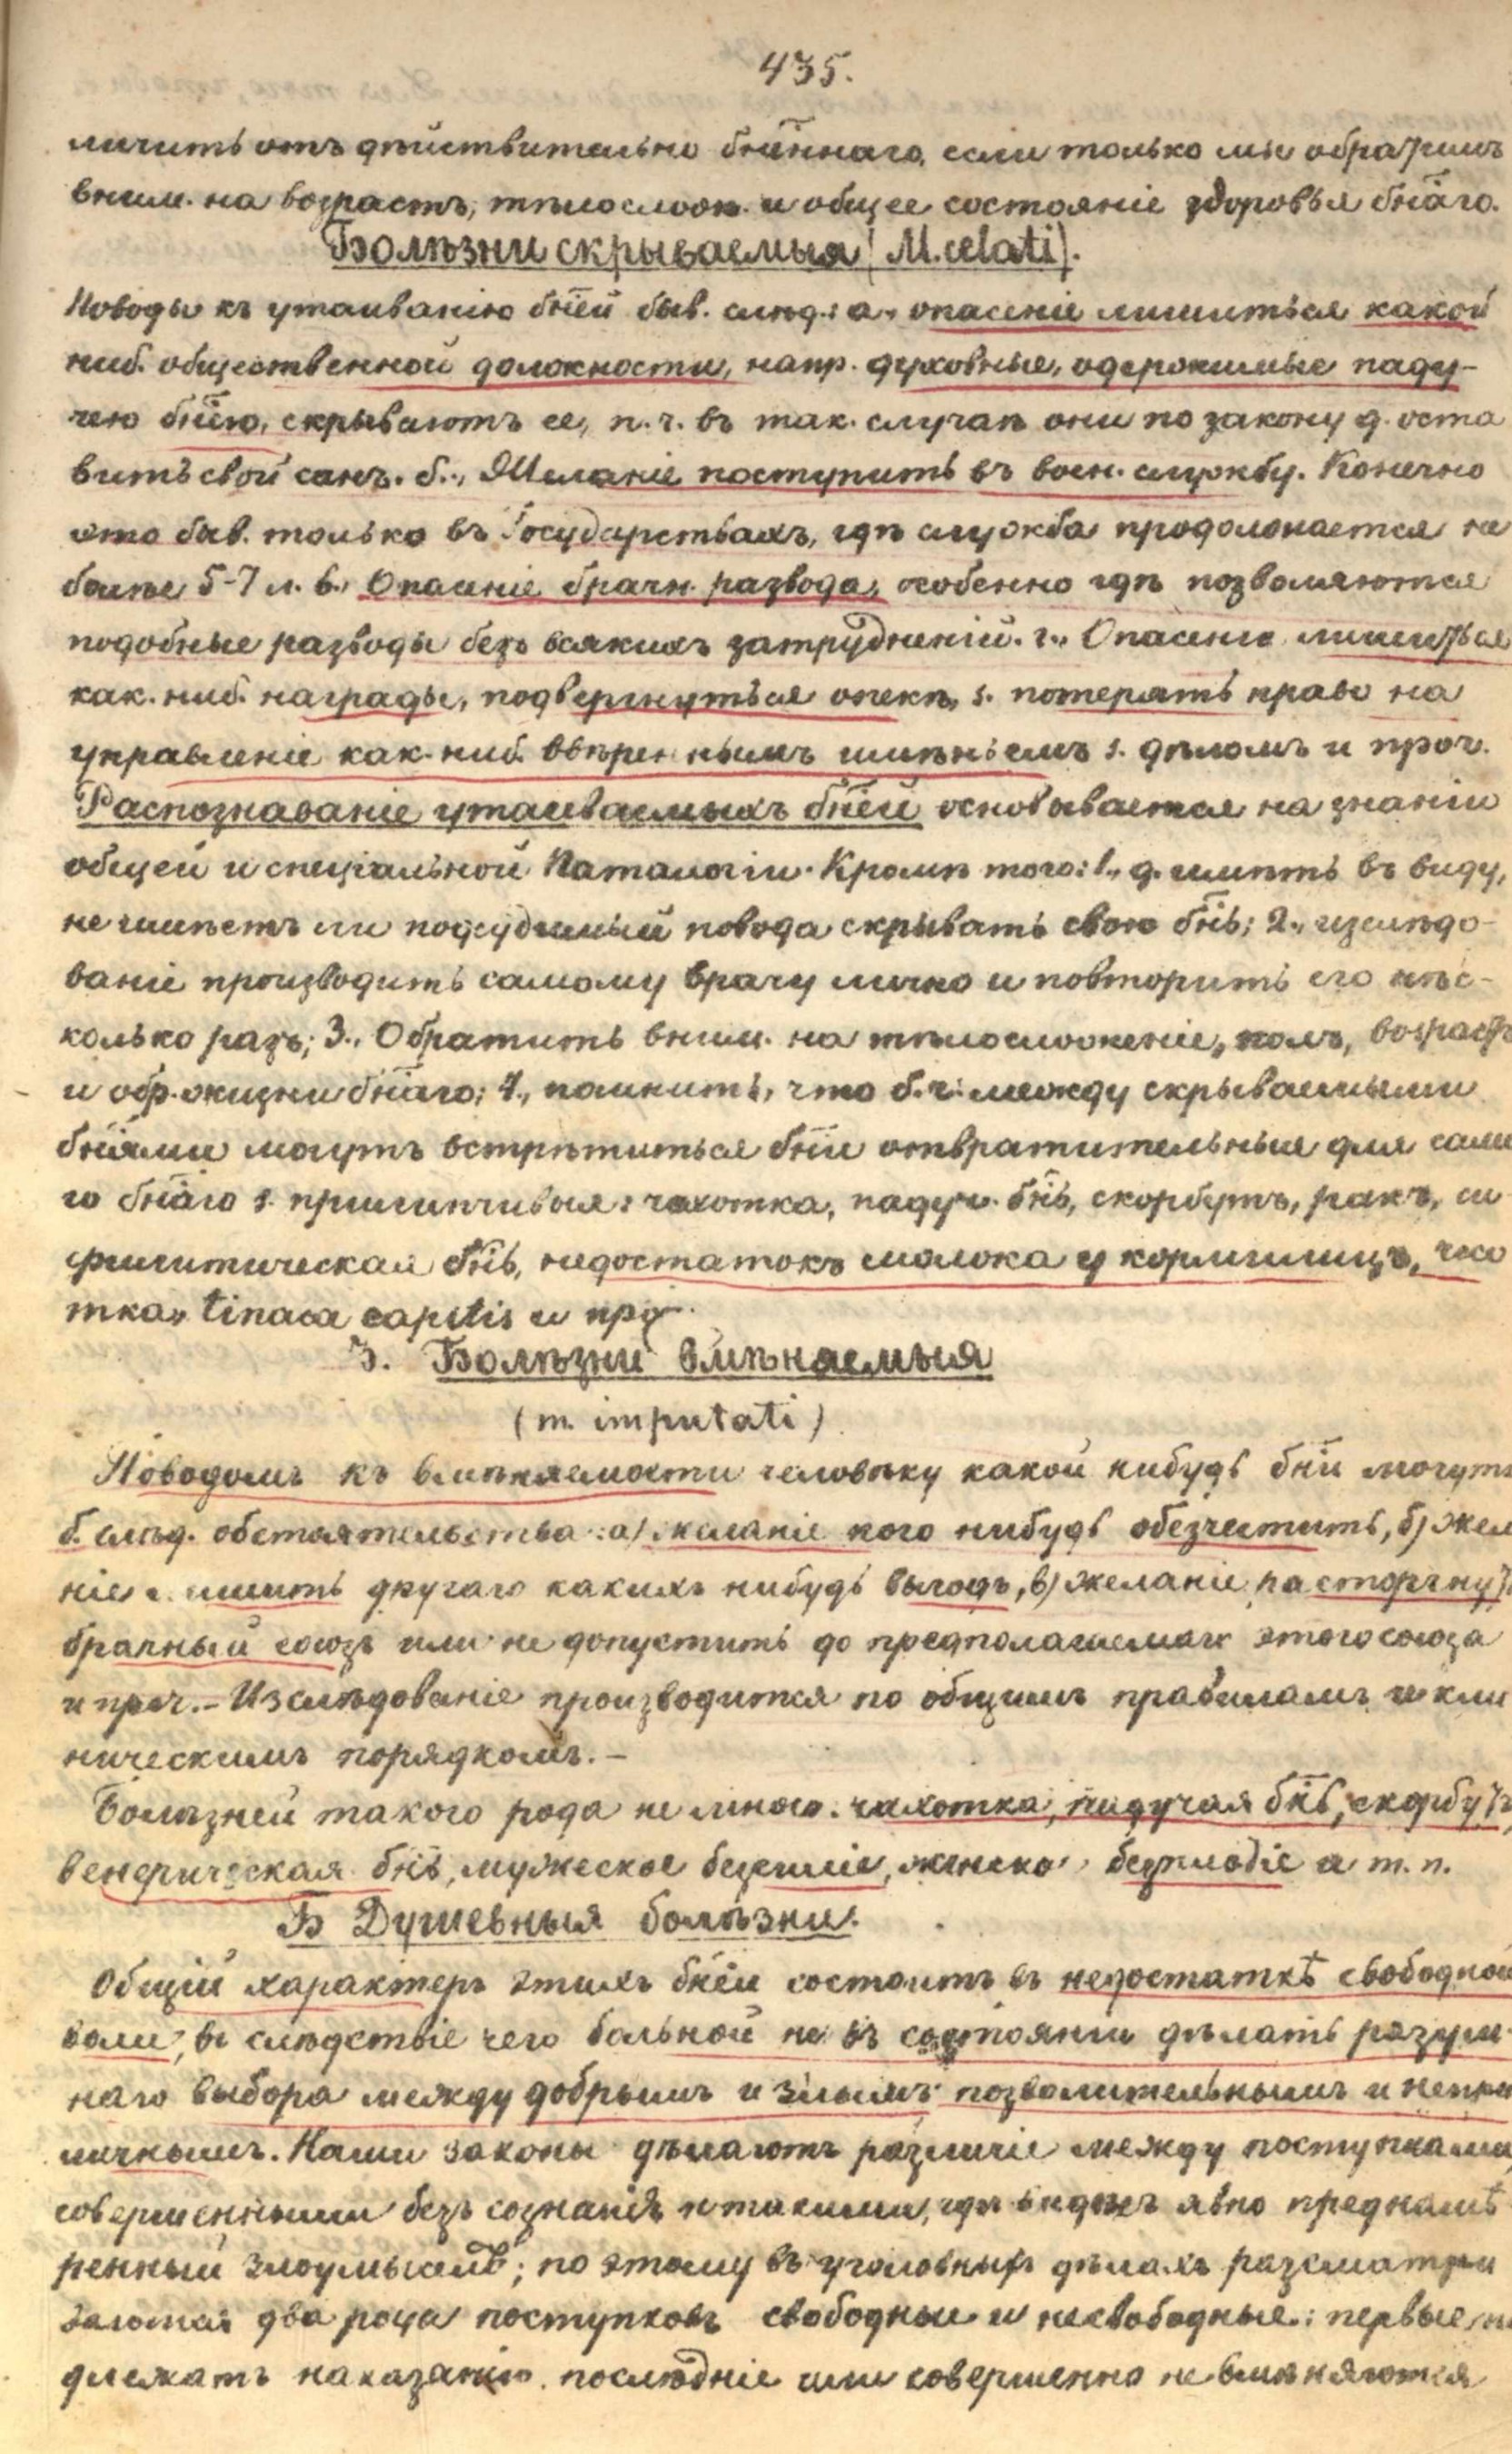 435.
личить отъ дѣйствительно бнѣннаго, если только мы обратимъ
вним. на возрастъ, тѣлослож. и общее состояніе здоровья бнаго.
Болѣзни скрываемыя (M. celati).
Поводы къ утаиванію бнѣй быв. слѣд.: а., опасеніе лишиться какой
ниб. общественной должности, напр. духовные, одержимые паду-
чею бнію, скрываютъ ее, п. ч. въ так. случаѣ они по закону д. оста
вить свой санъ. б., Желаніе поступить въ воен. службу. Конечно
это быв. только въ Государствахъ, гдѣ служба продолжается не
болѣе 5-7 л. в., Опасеніе брачн. развода, особенно гдѣ позволяются
подобные разводы безъ всякихъ затрудненій. г., Опасеніе лишиться
как. ниб. награды, подвергнуться опекѣ, s. потерять право на
управленіе как. ниб. ввѣреннымъ имѣніемъ s. дѣломъ и проч.
Распознаваніе утаиваемыхъ бнѣй основывается на знаніи
общей и спеціальной Паталогіи. Кромѣ того: 1., д. имѣть въ виду,
не имѣетъ ли подсудимый повода скрывать свою бнь; 2., изслѣдо-
ваніе производить самому врачу лично и повторить его нѣс-
колько разъ; 3., Обратить вним. на тѣлосложеніе, полъ, возрастъ
и обр. жизни бнаго; 4., помнить, что б. ч. между скрываемыми
бніями могутъ встрѣтиться бніи отвратительныя для само
го бнаго s. прилипчивыя: чахотка, падуч. бнь, скорбутъ, ракъ, си
филитическая бнь, недостатокъ молока у кормилицъ, чесо
тка, tinaea capitis и проч.
3. Болѣзни вмѣняемыя
(m. imputati)
Поводомъ къ вмѣняемости человѣку какой нибудь бни могутъ
б. слѣд. обстоятельства: а) желаніе кого нибудь обезчестить, б) жела
ніе лишить другаго какихъ нибудь выгодъ, в) желаніе расторгнуть
брачный союзъ или не допустить до предполагаемаго этого союза
и проч. – Изслѣдованіе производится по общимъ правиламъ и кли
ническимъ порядкомъ. –
Болѣзней такого рода не много: чахотка, падучая бнь, скорбутъ,
венерическая бнь, мужеское безсиліе, женское безплодіе и т. п.
Б Душевныя болѣзни.
Общій характеръ этихъ бнѣй состоитъ въ недостаткѣ свободной
воли, въ слѣдствіе чего больной не въ состояніи дѣлать разум-
наго выбора между добрымъ и злымъ, позволительнымъ и непри
личнымъ. Наши законы дѣлаютъ различіе между поступками,
совершенными безъ сознанія и такими, гдѣ виденъ явно преднамѣ
ренный злоумыселъ; по этому въ уголовныхъ дѣлахъ разсматри
ваются два рода поступковъ свободные и несвободные: первые по
длежатъ наказанію, послѣдніе или совершенно не вмѣняются